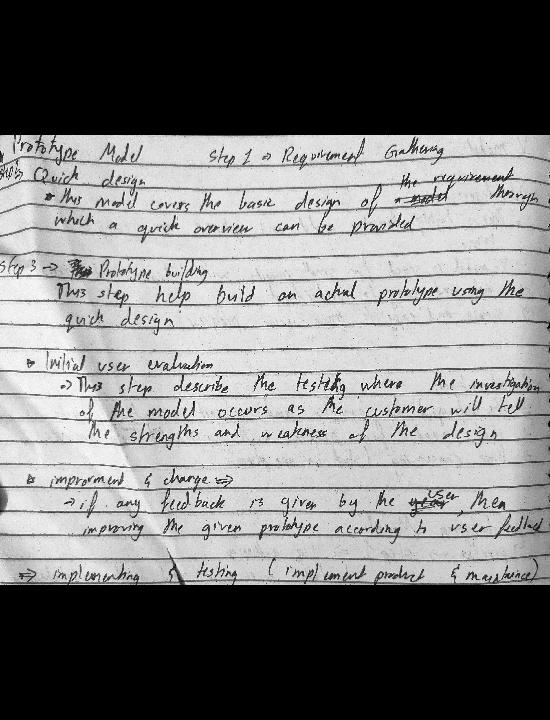 Prototype Model Step 1 → Requirement Gathering
Step 2 Quick design
this model covers the basic design of the requirement through
which a quick overview can be provided
Step 3 → Prototype building
This step help build an actual prototype using the
quick design
Initial user evaluation
→ This step describe the testing where the investigation
of the model occurs as the customer will tell
the strengths and weakness of the design
improvment & change ⇒
→ if any feedback is given by the user, then
improving the given prototype according to user feedback
⇒ implementing & testing ( implement product & maintaince)